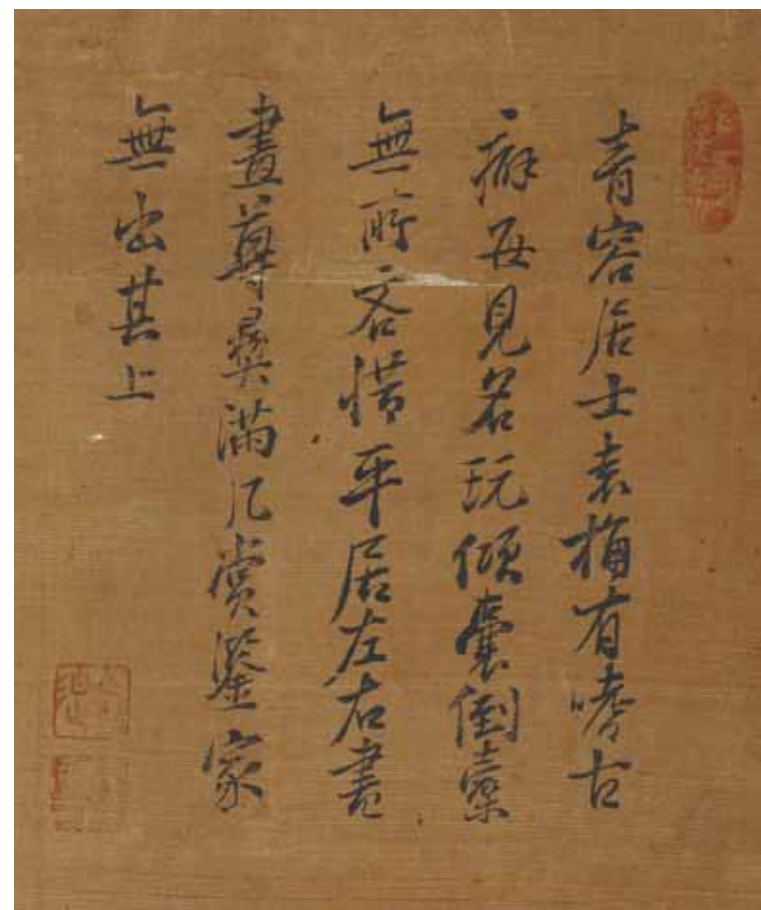 青容居士袁梅有嗜古
癖每見名玩傾囊倒橐
無所吝惜平居左右書
畫尊彝滿几賞鑒家
無出其上